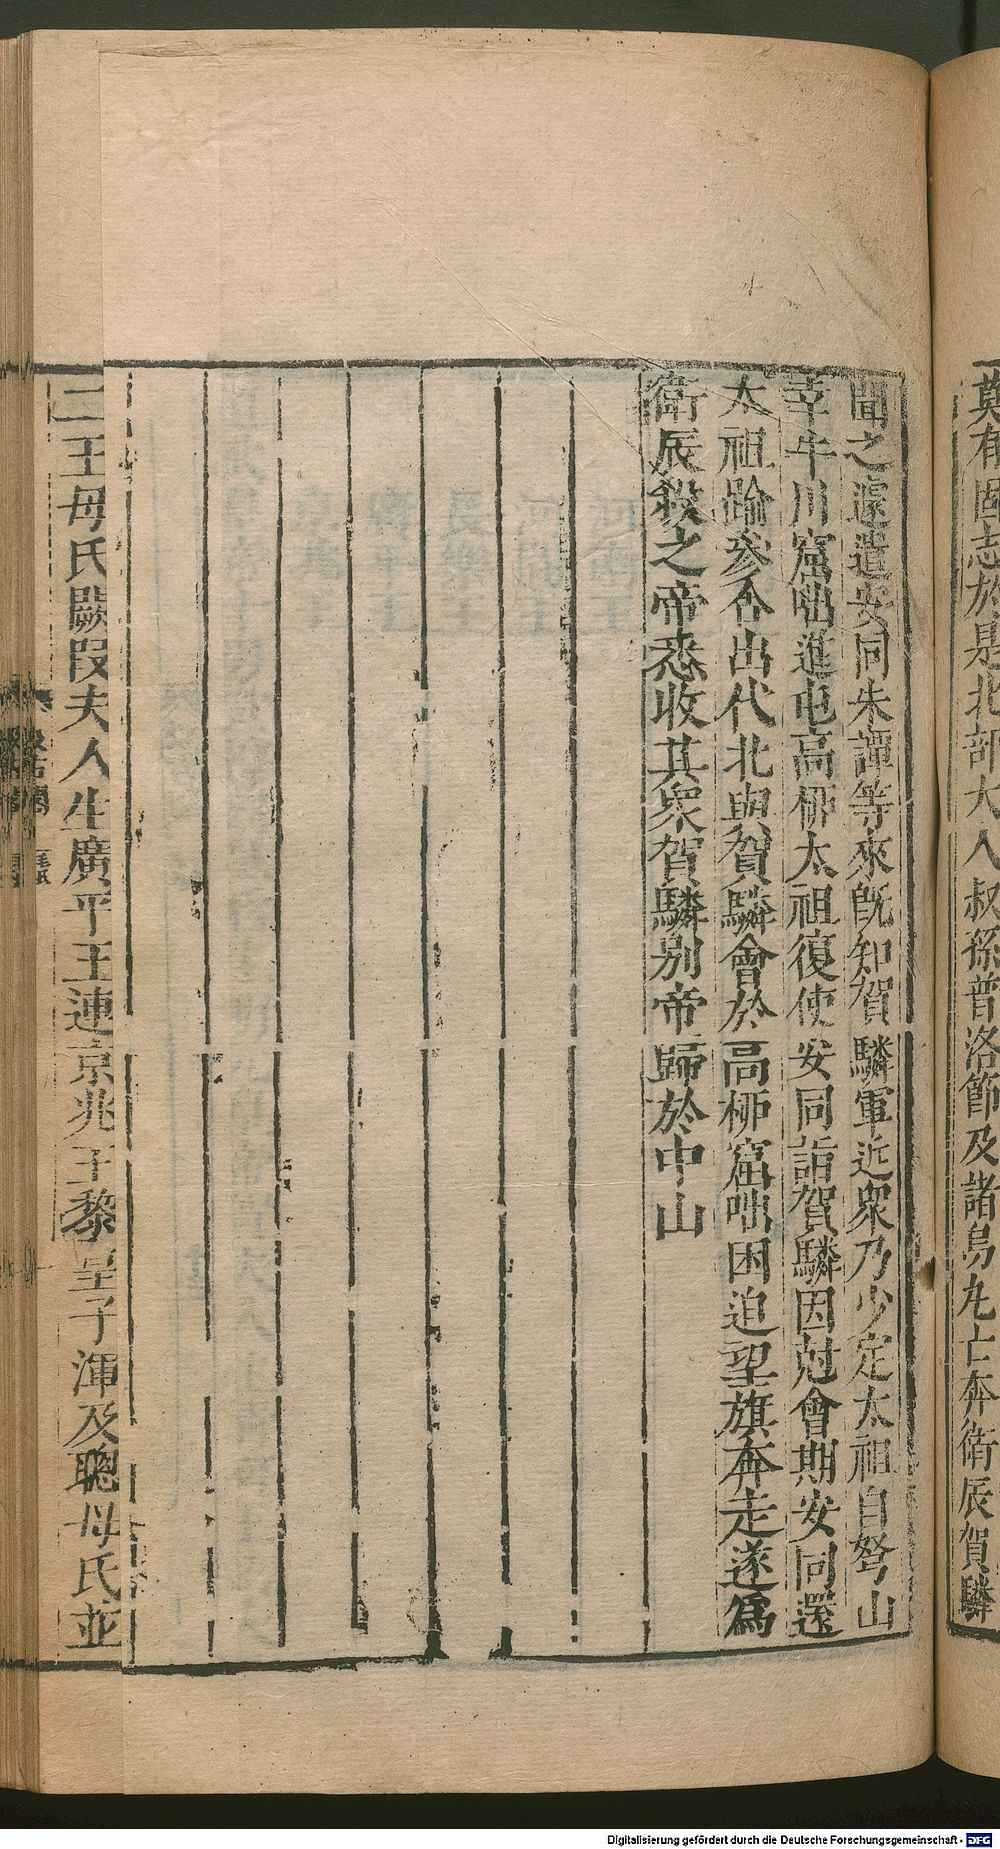 莫有固志於是北部大人叔孫普洛節及諸烏丸亡奔衛辰賀驎
聞之遽遣安同朱譚等來旣知賀驎軍近衆乃少定太祖自弩山
幸牛川窟咄進屯高桺太祖復使安同詣賀驎因尅會期安同還
太祖踰參合出代北與賀驎會於高桺窟咄困迫望旗奔走遂爲
衛辰殺之帝悉收其衆賀驎别帝歸於中山
二王母氏闕段夫人生廣平王連京兆王黎皇子渾及聰母氏並
Digitalisierung gefördert durch die Deutsche Forschungsgemeinschaft - DFG